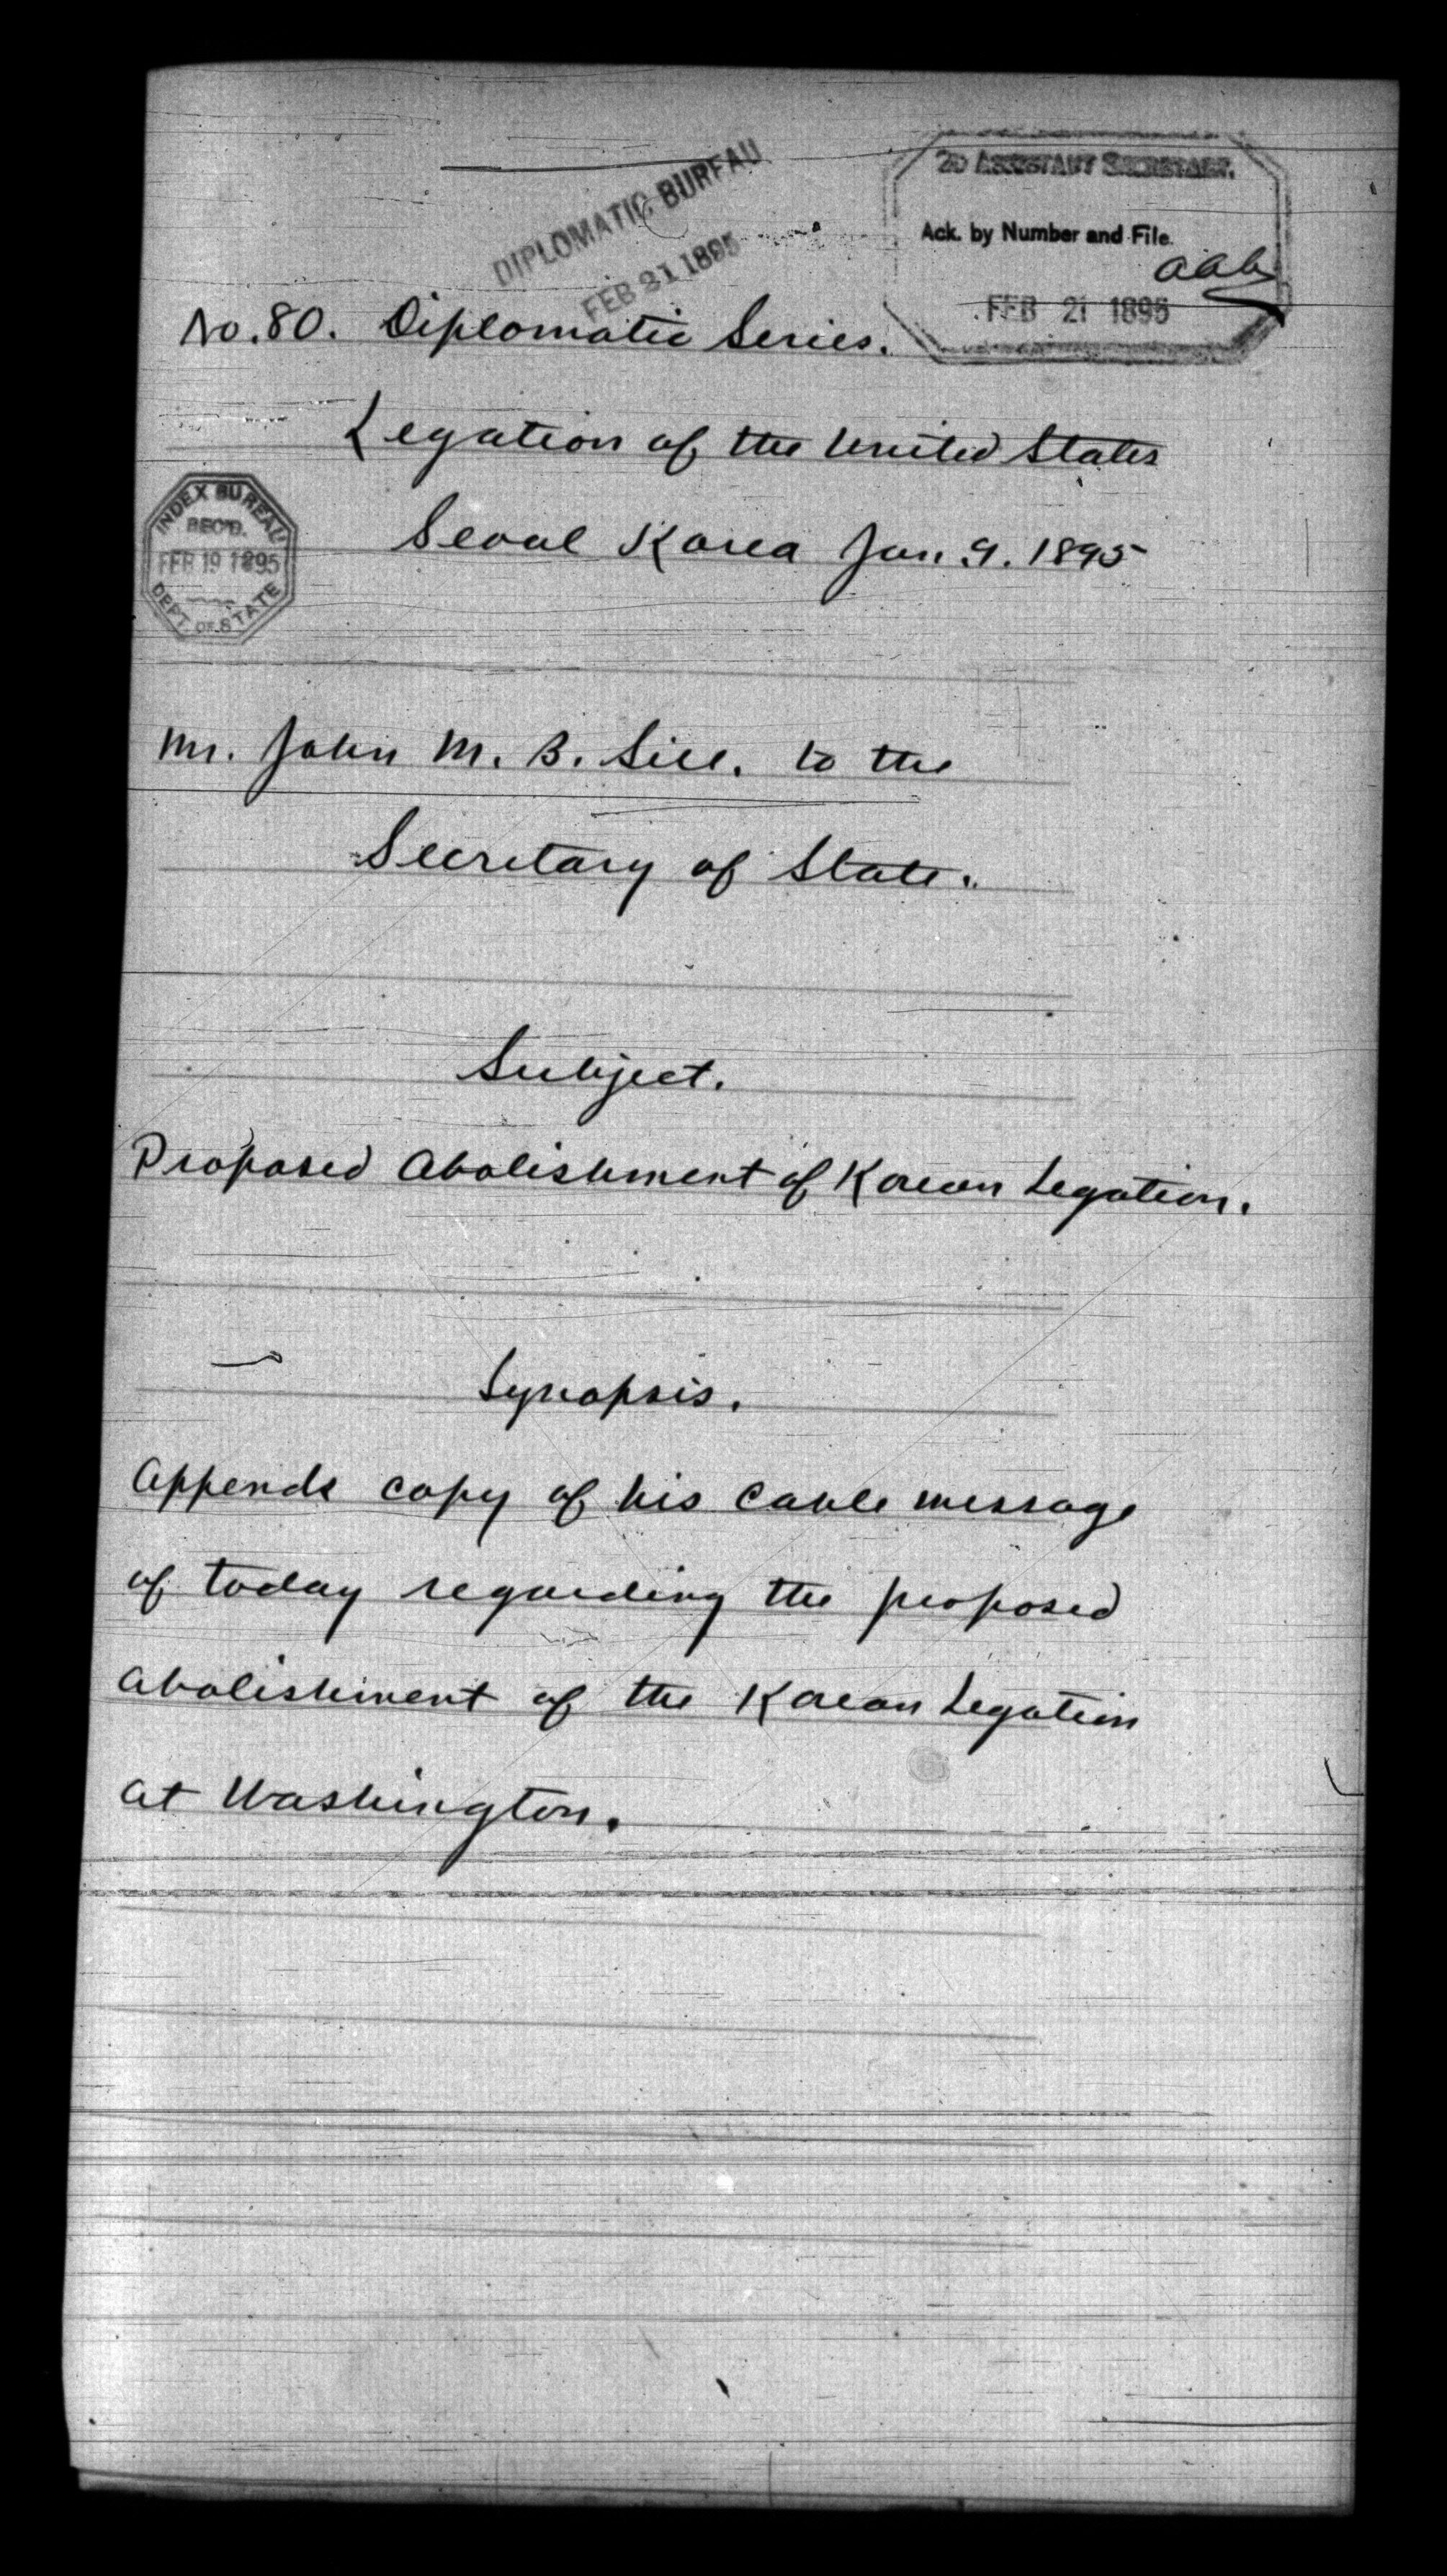 DIPLOMATIC BUREAU
FEB 21 1895
2D ASSISTANT SECRETARY.
Ack. by Number and File.
FEB 21 1895
No. 80. Diplomatic Series.
Legation of the United States
Seoul Korea Jan. 9. 1895
INDEX BUREAU
REC'D.
FEB 19 1895
DEPT. OF STATE
Mr. John M. B. Sill. to the
Secretary of State.
Subject.
Proposed Abolishment of Korean Legation.
Synopsis.
Appends copy of his cable message
of today regarding the proposed
abolishment of the Korean Legation
at Washington.